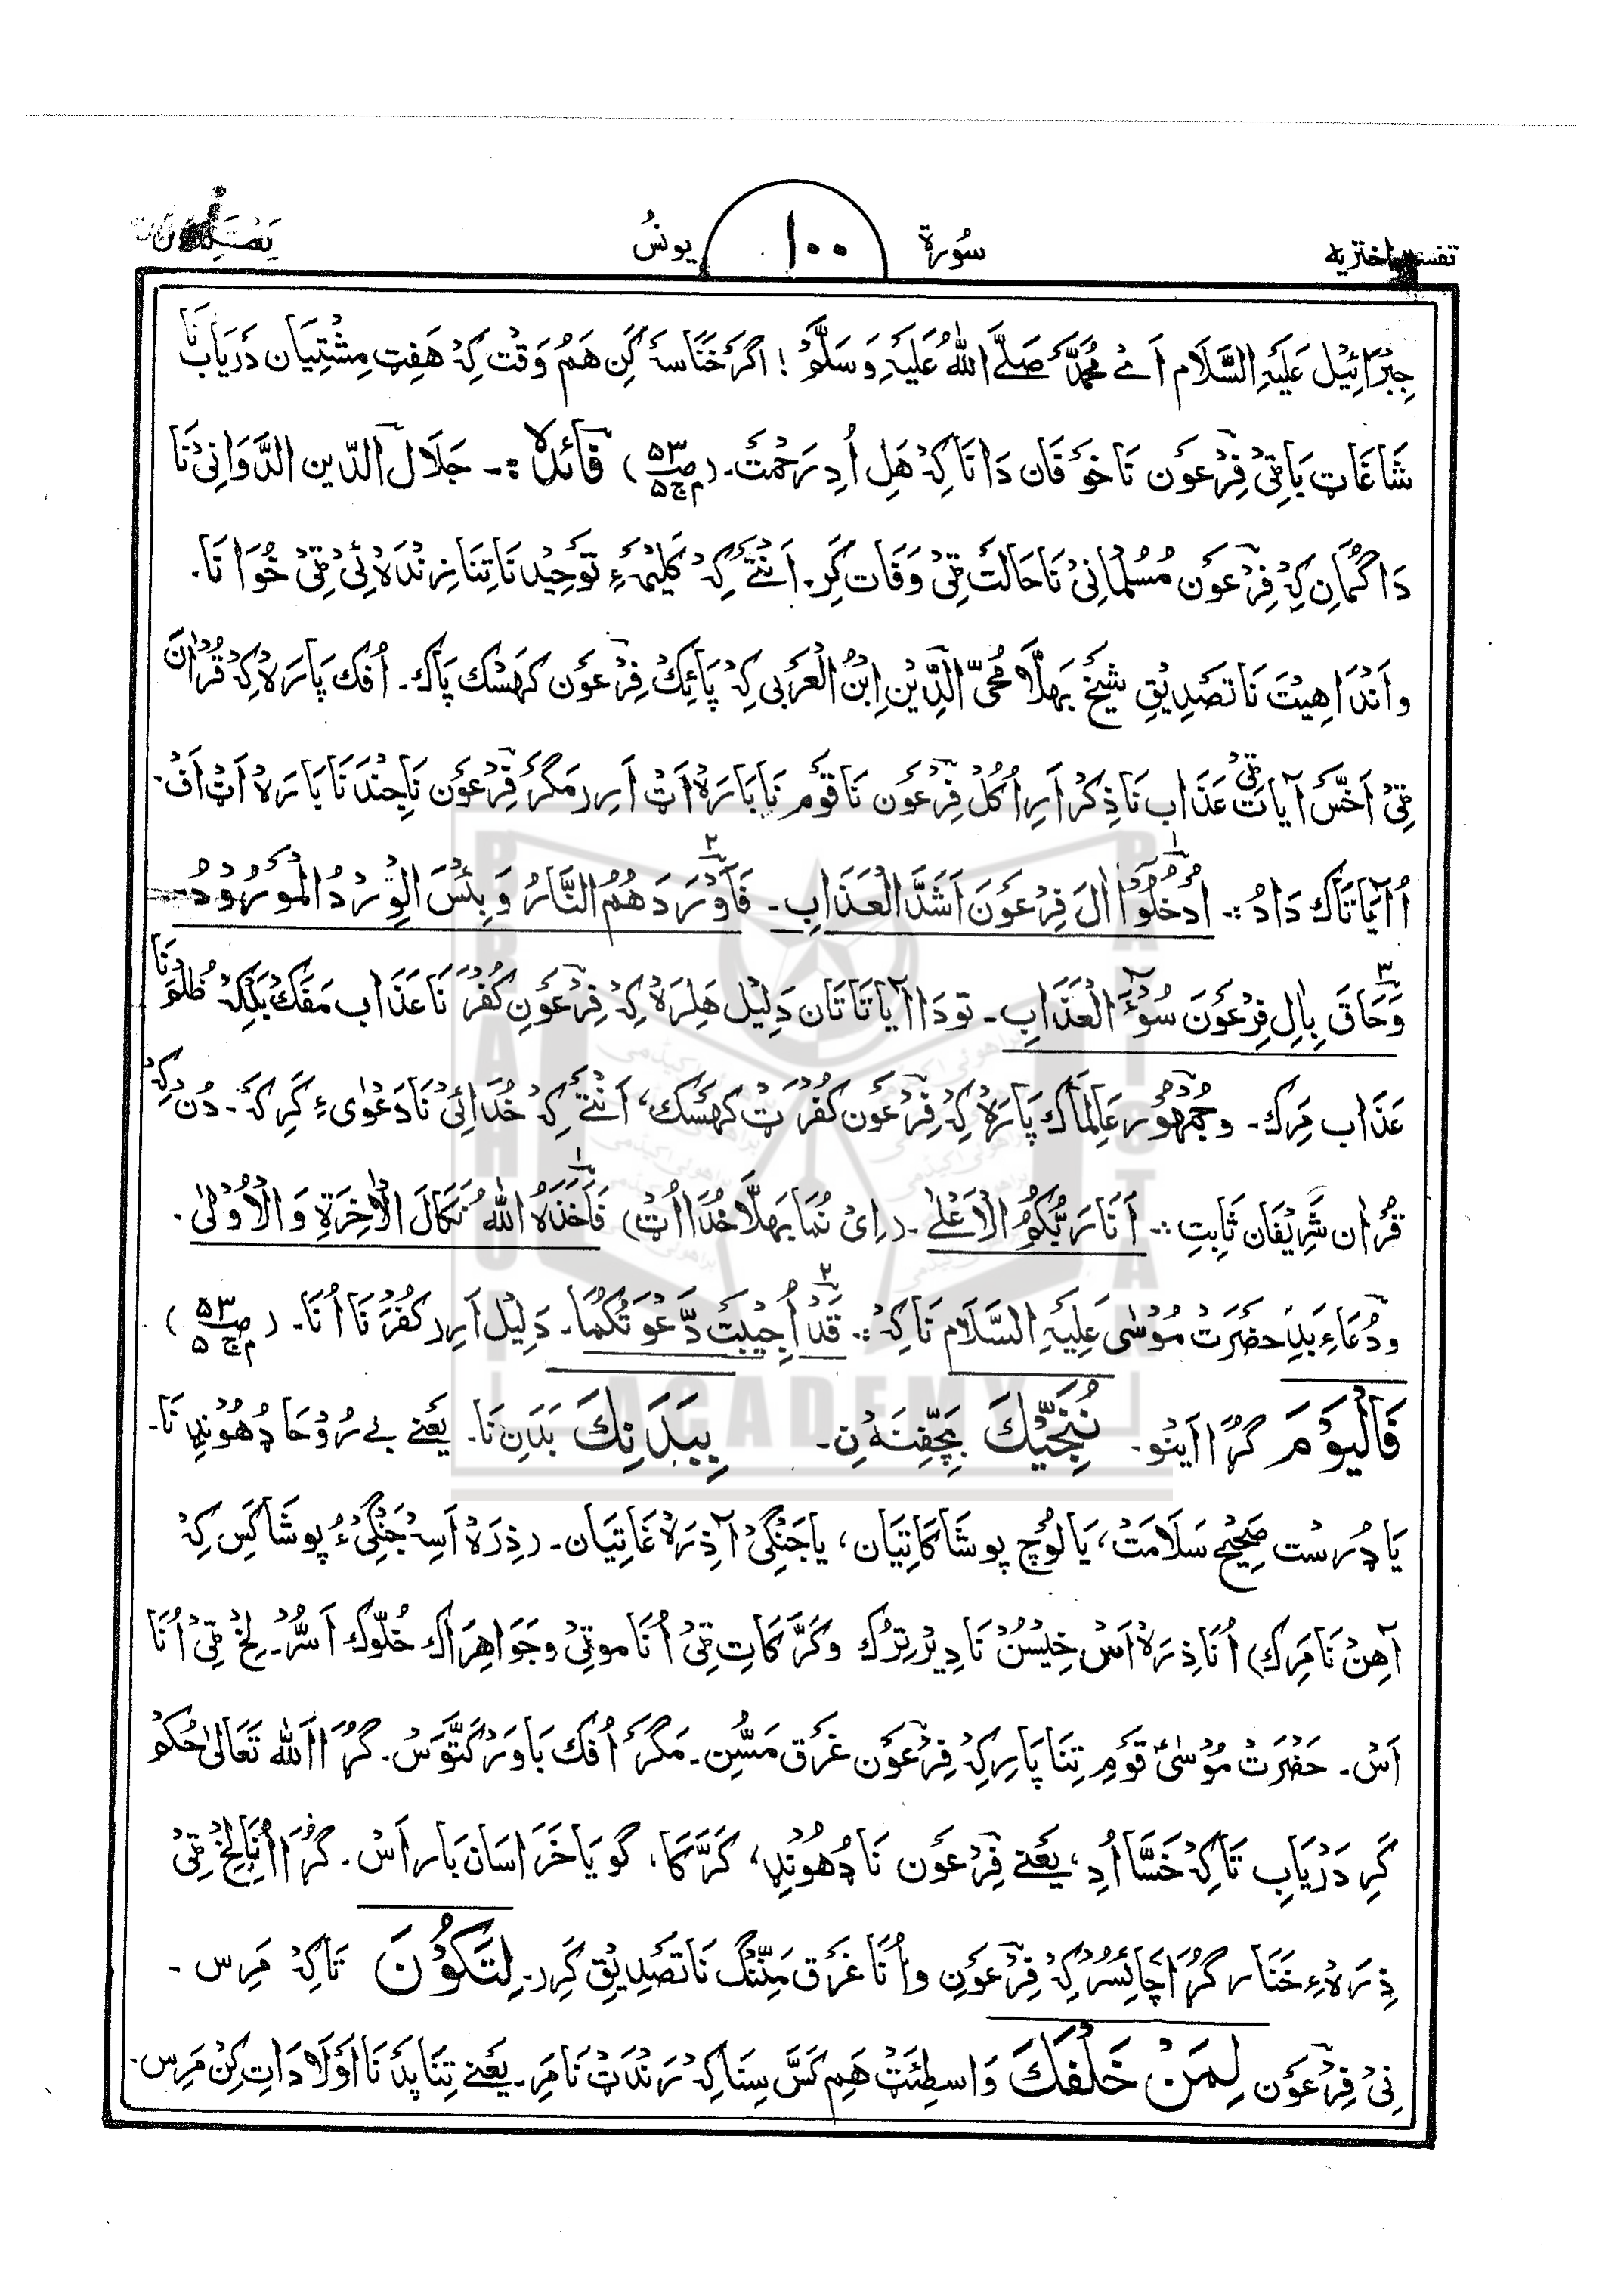 تفسیر اختریه سُورۃ ۱۰۰ یونسُ
جِبْرَائِیْل عَلَیْہِ السَّلَام اَے مُحَمَّدْ صَلَّے اللّٰہُ عَلَیْہِ وَسَلَّمْ ! اگرَ خَنَاسَہ کَنِ هَمُ وَقْت کِہْ هَفِت مِشْتِیَان دَرْیَاب نَا
شَاغَات بَاتِیْ فِرْعَوْن نَا خَوْفَان دَانَا کِہْ هَلِ اُدِ رَحْمَتَ۔ (م ج ۵ صـ ۵۳) فَائدہ :۔ جَلَال الدّین الدَّوَانِیْ نَا
دَا گُمَانِ کِہْ فِرْعَوْن مُسْلْمَانِیْ نَا حَالَتْ ٹِیْ وَفَات کَرِ۔ اَنْتَےْ کِہْ کَلِیْمَہءِ تَوْحِیْد نَا تِنَا زِنْدَہْ ئِیْ ٹِیْ خُوَانَا۔
وانْدَاهِیْت نَا تَصْدِیْقِ شَیْخ بَهلَّا مُحْیّ الدِّیْن اِبْنُ الْعَرَبِی کِہْ پَائِکْ فِرْعَوْن کَهَسْک پَاک۔ اُفک پَارَہْ کِہْ قُرْاٰنَ
ٹِیْ اَخَّسْ آیَات ٹِیْ عَذَاب نَا ذِکْر اَرِ اُ کُلْ فِرْعَوْن نَا قَوْم نَا بَارَہْ اَٹ اَرِر مَگَرْ فِرْعَوْن نَا جِنْدَنَا بَارَہْ اَٹ اَفْ۔
اُ آیَاتَاک دَادُ :۔ اَدْخِلُوْٓا اٰلَ فِرْعَوْنَ اَشَدَّ الْعَذَابِ۔ فَاَوْرَدَهُمُ النَّارَ وَبِئْسَ الْوِرْدُ الْمَوْرُوْدُ۔
وَحَاقَ بِاٰلِ فِرْعَوْنَ سُوْٓءُ الْعَذَابِ۔ تو دَا آیَاتَاتَان دَلِیْل هَلِرَہْ کِہْ فِرْعَوْنِ کُفْر نَا عَذَاب مَفَکْ بَلْکِہْ ظُلْم نَا
عَذَاب مَرِک۔ وجُمْهُوْر عَالِمَاک پَارَہْ کِہْ فِرْعَوْن کُفْرَتْ کَهَسْک، اَنْتَےْ کِہْ خُدَائِیْ نَا دَعْوٰیءِ کَرِکَہ۔ دُنْ کِہْ
قُرْاٰن شَرِیْفَان ثَابِتِ :۔ اَنَا رَبُّکُمُ الْاَعْلٰے۔ (اِیْ نُمَا بَهلَّا خُدَا اُٹ) فَاَخَذَہُ اللّٰہُ نَکَالَ الْاٰخِرَۃِ وَالْاُوْلٰی۔
ودُعَاءِ بَدِ حَضْرَت مُوْسٰی عَلَیْہِ السَّلَام نَا کِہْ :۔ قَدْ اُجِیْبَتْ دَّعْوَتُکُمَا۔ دَلِیْل اَرِر کُفْرَنَا اُنَا۔ (م ج ۵ صـ ۵۳)
فَالْیَوْمَ گُرَا اَیْنو۔ نُنَجِّیْكَ بَچِّفِنَہ نِ۔ بِبَدَنِكَ بَدَنِ نَا۔ یَعْنے بے رُوْحَا دُهُوْنڈِ نَا۔
یَا دُرُسْت صَحِیْح سَلَامَتْ، یَا لُوْچ پوشَاکَاتِیَان، یا جَنْگِیْ آ ذِرَہْ غَاتِیَان۔ رذِرَہْ اَسِہ جَنْگِیْءُ پوشَاکَسِ کِہْ
آهِنْ نَا مَرِک) اُنَا ذِرَہْ اَسْ خِیْسُنْ نَا دِیْر تِرُک وکَرَّکَاتِ ٹِیْ اُنَا موتِیْ وجَوَاهِرَاک خُلّوک اَسُّر۔ لِخْ ٹِیْ اُنَا
اَسْ۔ حَضْرَت مُوْسٰیٰ قَوْمِ تِنَا پَارِ کِہْ فِرْعَوْن غَرْق مَسُّن۔ مَگَرْ اُفک بَاوَرْ کَتَّوَسْ۔ گُرَا اَللّٰہ تَعَالٰی حُکْم
کَرِ دَرْیَابِ تَاکِہْ خَسَّا اُدِ، یَعْنے فِرْعَوْن نَا دُهُوْنڈِ، کَرَّکَا، گویَا خَرَاسَان بَار اَسْ۔ گُرَا اُنَا لِخْ ٹِیْ
ذِرَہْءِ خَنَار گُرَا چَائسُرْ کِہْ فِرْعَوْنِ واُنَا غَرْق مَنِّنْگ نَا تَصْدِیْق کَرِر۔ لِتَکُوْنَ تَاکِہْ مَرِس ۔
نِیْ فِرْعَوْن لِمَنْ خَلْفَكَ وَاسِطِئَتْ هَم کَسَّ سِنَا کِہْ رَنْدَتْ نَا مَرِ۔ یَعْنے تِنَا پَدْ نَا اَوْلَادَاتِ کِنْ مَرِس۔